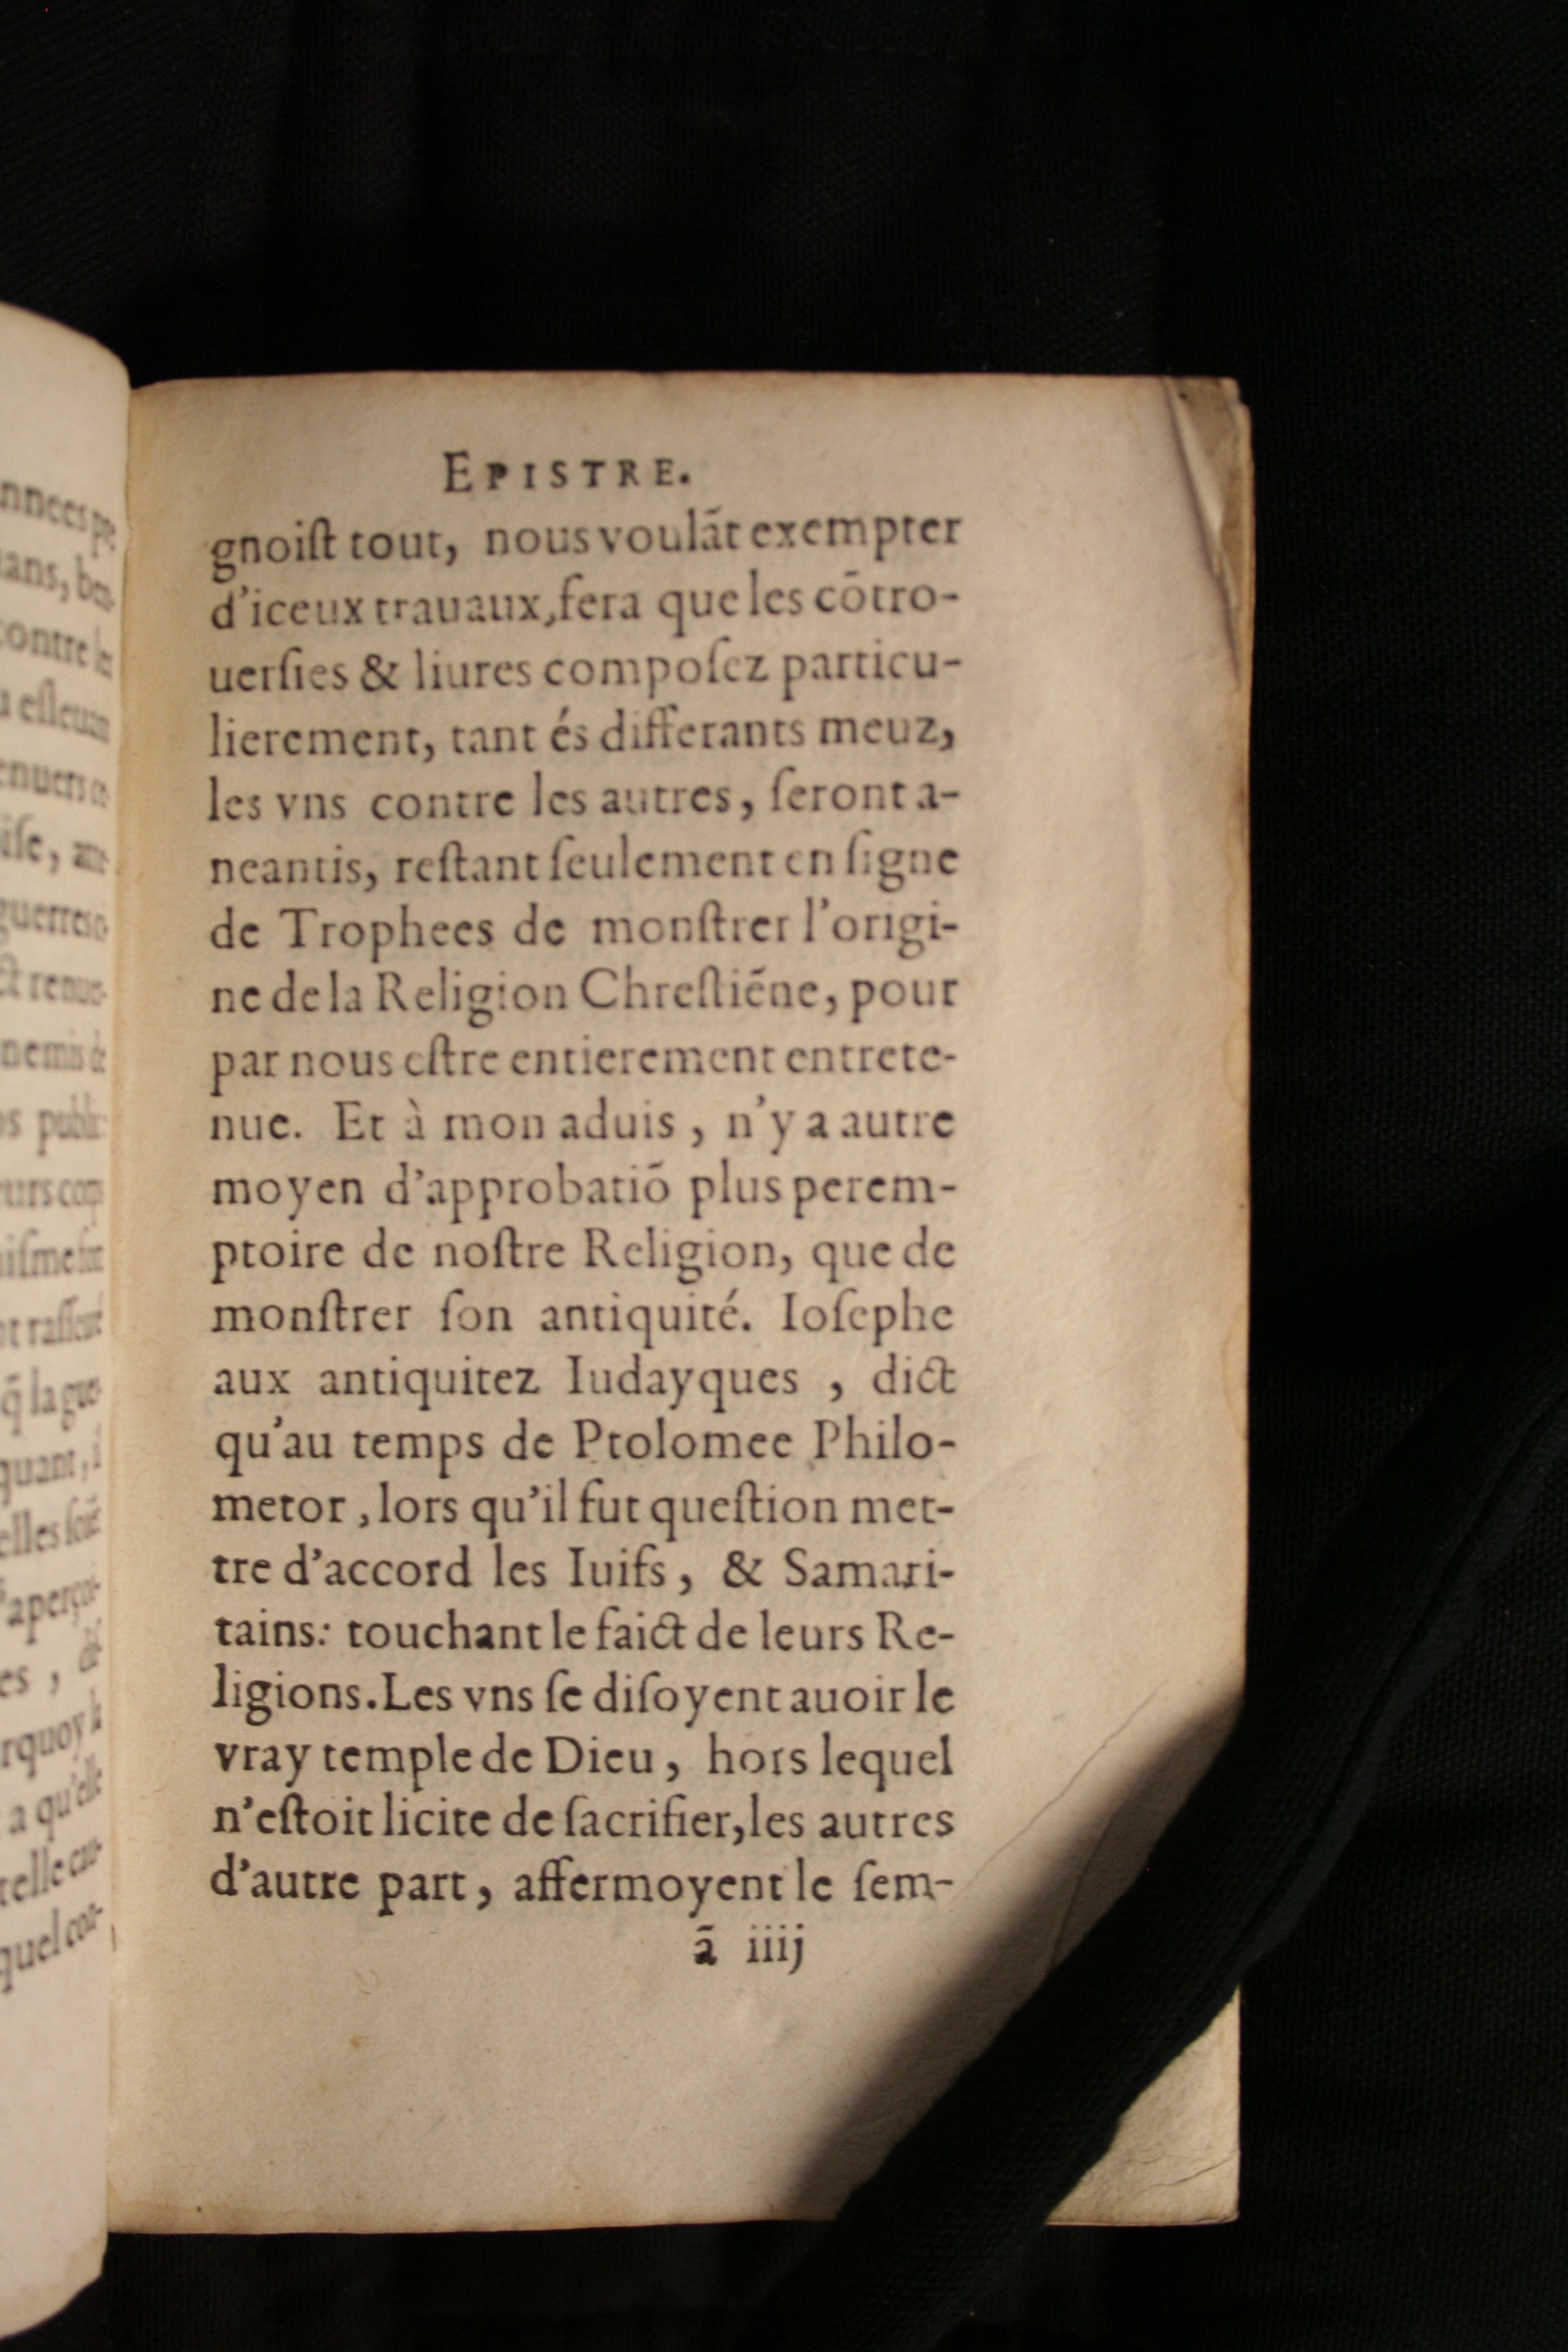 EPISTRE.
gnoiſt tout, nous voulãt exempter
d'iceux trauaux, fera que les cõtro-
uerſies & liures compoſez particu-
lierement, tant és differants meuz,
les vns contre les autres, ſeront a-
neantis, reſtant ſeulement en ſigne
de Trophees de monſtrer l'origi-
ne de la Religion Chreſtiẽne, pour
par nous eſtre entierement entrete-
nue. Et à mon aduis, n'y a autre
moyen d'approbatiõ plus perem-
ptoire de noſtre Religion, que de
monſtrer ſon antiquité. Ioſephe
aux antiquitez Iudayques, dict
qu'au temps de Ptolomee Philo-
metor, lors qu'il fut queſtion met-
tre d'accord les Iuifs, & Samari-
tains: touchant le faict de leurs Re-
ligions. Les vns ſe diſoyent auoir le
vray temple de Dieu, hors lequel
n'eſtoit licite de ſacrifier, les autres
d'autre part, affermoyent le ſem-
ã iiij